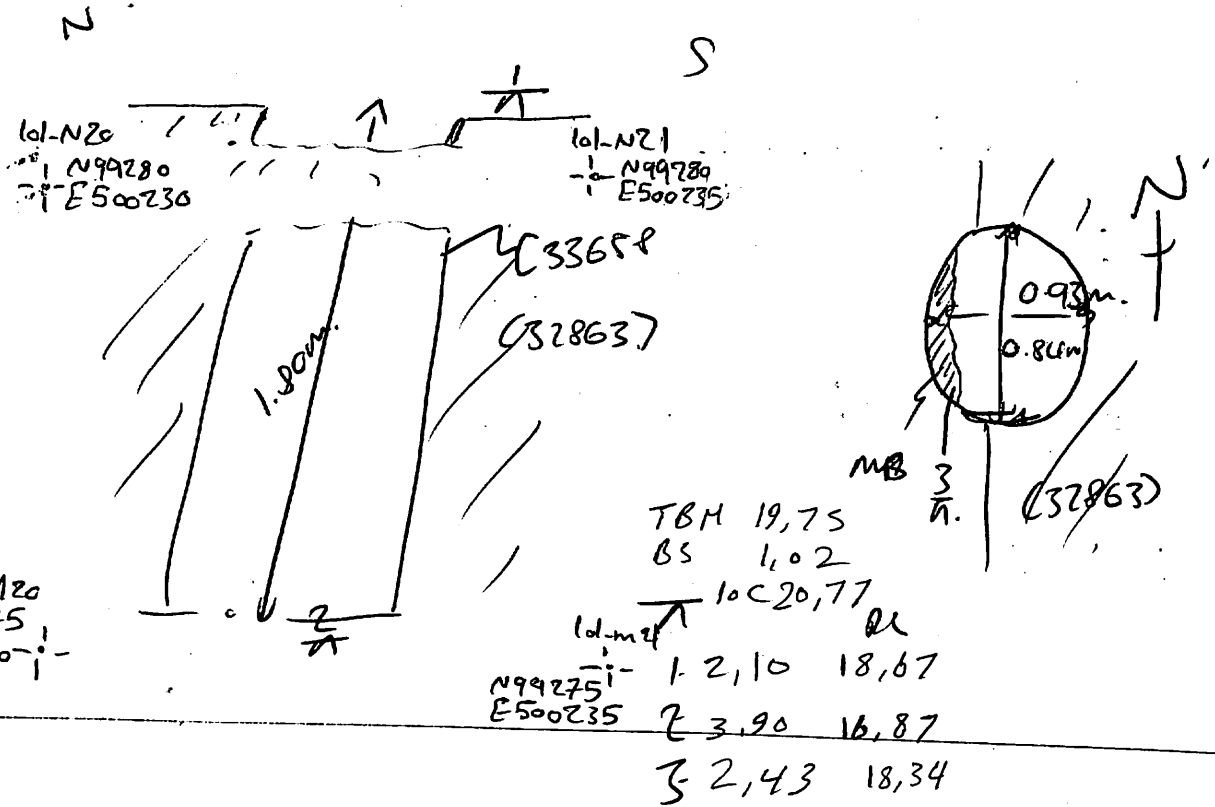 N
S
1
lol-N20
N99280
E500230
lol-N21
N99280
E500235
[33658
(32863)
1.80m.
N
0.93m.
MB
3
(32863)
TBM 19,75
BS 1,02
20,77
2
lol-m21
N99275
E500235
1. 2,10 18,67
2 3,90 16,87
3. 2,43 18,34